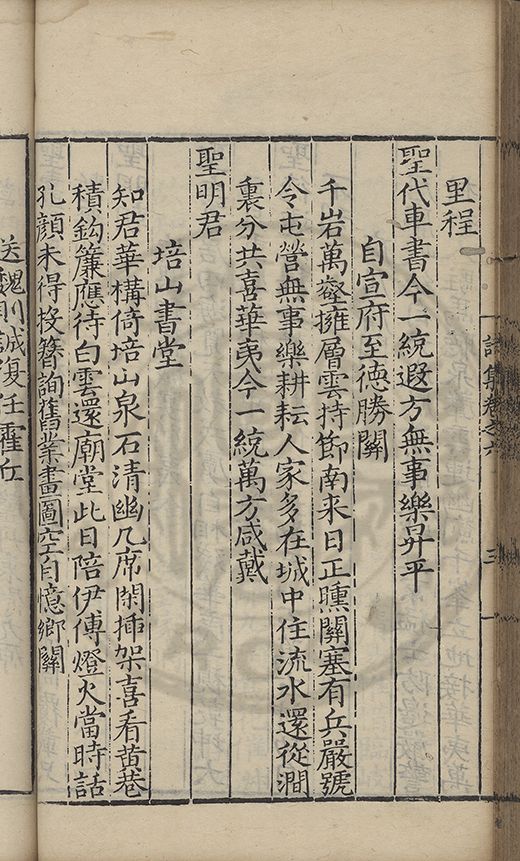 詩集卷之六
三
里程
聖代車書今一統遐方無事樂昇平
自宣府至德勝關
千岩萬壑擁層雲持節南來日正曛關塞有兵嚴號
令屯營無事樂耕耘人家多在城中住流水還從澗
裏分共喜華夷今一統萬方咸戴
聖明君
培山書堂
知君華構倚培山泉石清幽几席閑揷架喜看黄卷
積鈎簾應待白雲還廟堂此日陪伊傅燈火當時話
孔顔未得投簪詢舊業畫圖空自憶鄉關
送魏訓誠復任霍丘